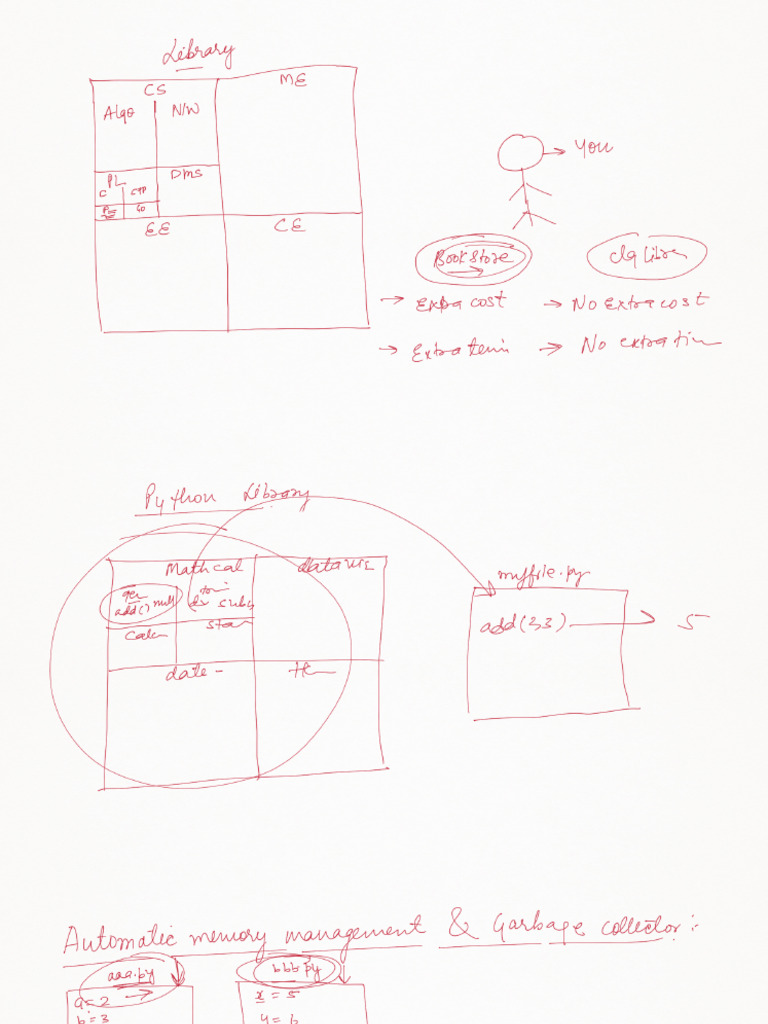 Library
CS
ME
Algo
N/W
PL
DMS
C
CPP
GO
EE
CE
You
Book Store
clg
→ Extra cost
→ No Extra cost
→ Extra
→ No extra
Python Library
Mathcal
add()
date -
myfile.py
add(2,3)
5
Automatic memory management & Garbage collector :-
aaa.py
bbb.py
a = 2
x = 5
b = 3
y = 6